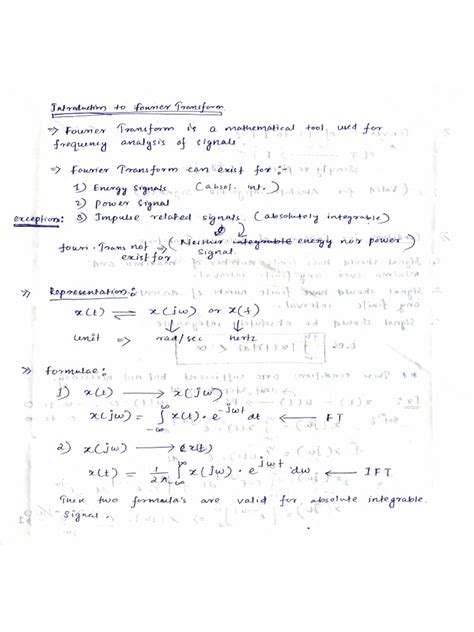 Introduction to Fourier Transform
⇒ Fourier Transform is a mathematical tool used for
frequency analysis of signals.
⇒ Fourier Transform can exist for :-
1) Energy Signals (absol. int.)
2) Power Signal
exception: 3) Impulse related signals. (absolutely integrable)
Fouri. Trans not exist for ⇒ (Neither integrable energy nor power) signal.
⇒ Representation :-
x(t) ⇌ x(jω) or x(f)
Unit ⇒ rad/sec hertz
⇒ Formulae :-
1) x(t) ⟶ x(jω)
x(jω) = ∫_{-∞}^{∞} x(t) · e^{-jωt} dt ⟵ FT
2) x(jω) ⟶ x(t)
x(t) = 1/2π ∫_{-∞}^{∞} x(jω) · e^{jωt} dω ⟵ IFT
These two formula's are valid for absolute integrable
Signal.